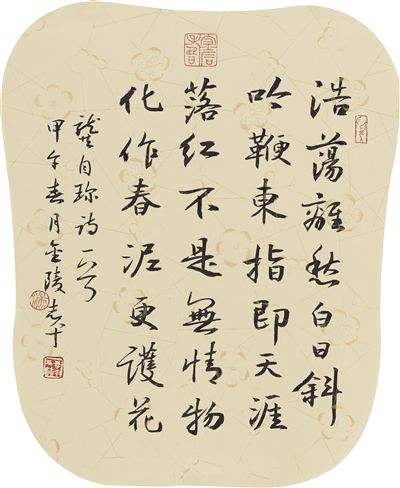 浩蕩離愁白日斜
吟鞭東指即天涯
落紅不是無情物
化作春泥更護花
龔自珍詩一首
甲午春月金陵志平